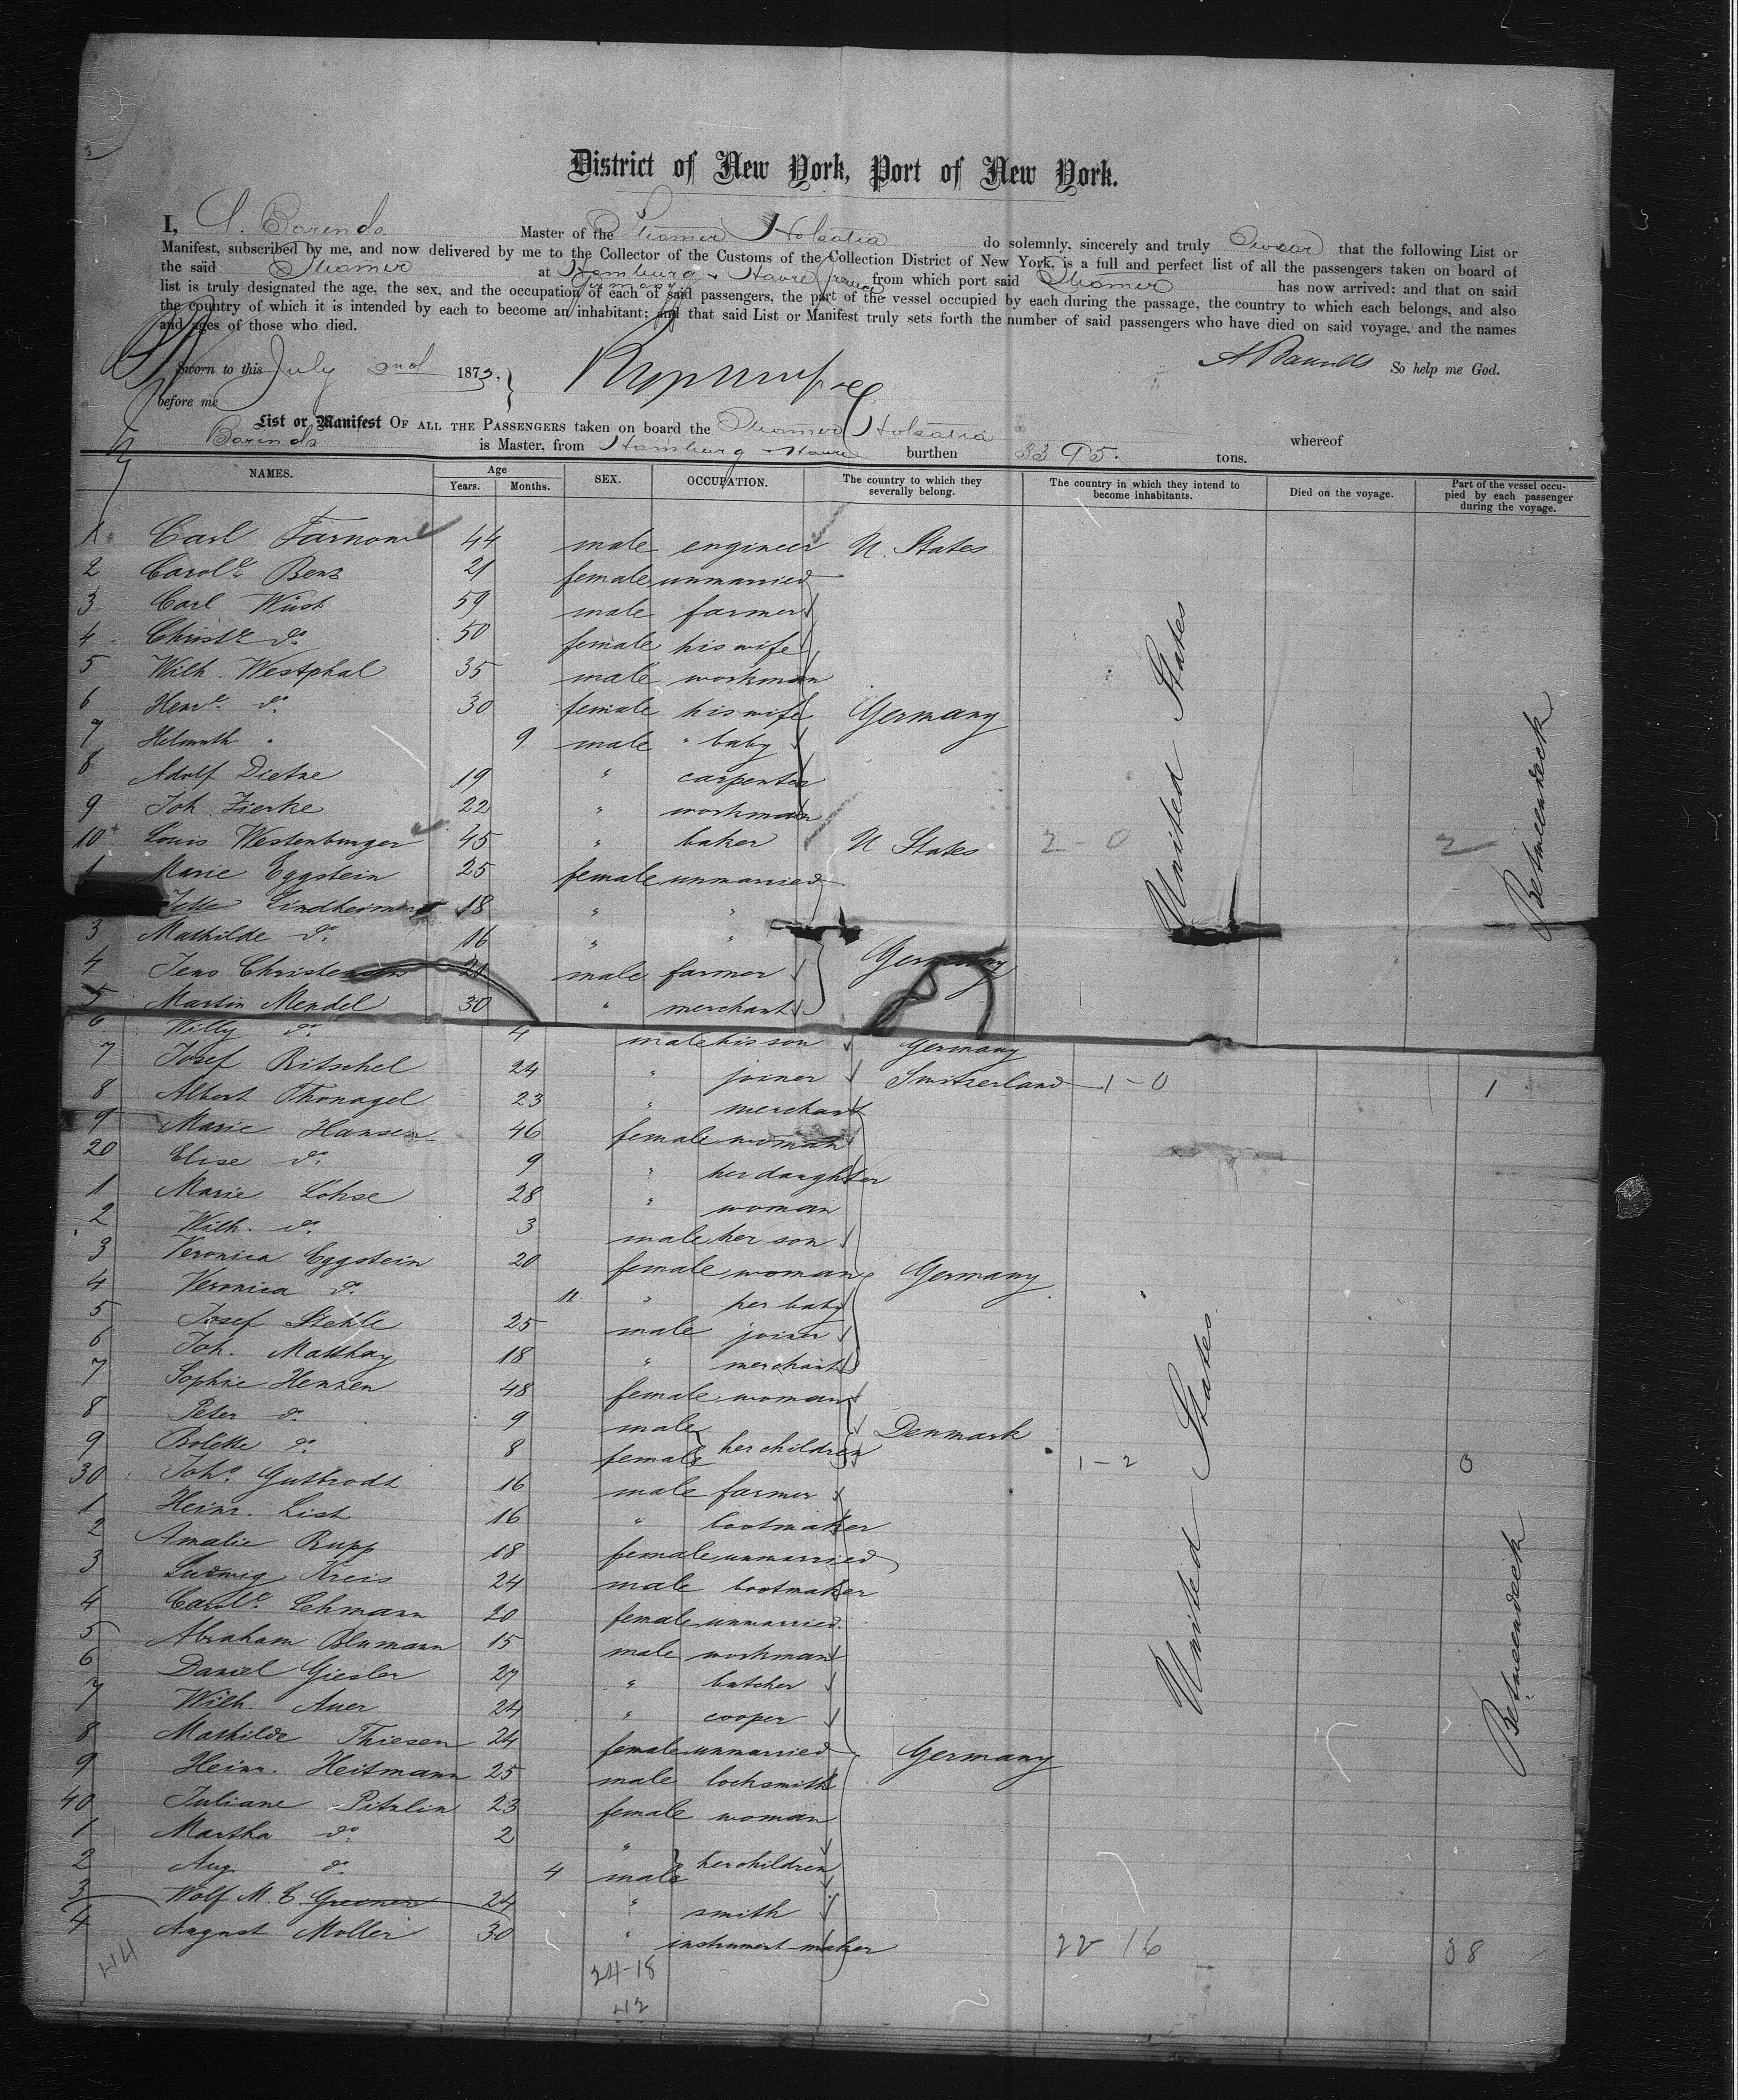 District of New York, Port of New York.
I, A. Barends Master of the Steamer Holsatia do solemnly, sincerely and truly Swear that the following List or
Manifest, subscribed by me, and now delivered by me to the Collector of the Customs of the Collection District of New York, is a full and perfect list of all the passengers taken on board of
the said Steamer at Hamburg & Havre from which port said Steamer has now arrived: and that on said
Germany France
list is truly designated the age, the sex, and the occupation of each of said passengers, the part of the vessel occupied by each during the passage, the country to which each belongs, and also
the country of which it is intended by each to become an inhabitant: and that said List or Manifest truly sets forth the number of said passengers who have died on said voyage, and the names
and ages of those who died.
Sworn to this July 2nd 1873, A Barends So help me God.
before me
List or Manifest OF ALL THE PASSENGERS taken on board the Steamer Holsatia whereof
Barends is Master, from Hamburg & Havre burthen 3395. tons.
NAMES. Age Years. Months. SEX. OCCUPATION. The country to which they severally belong. The country in which they intend to become inhabitants. Died on the voyage. Part of the vessel occupied by each passenger during the voyage.
1 Carl Farnom 44 male engineer U. States
2 Carole Benz 21 female unmarried
3 Carl Wüst 59 male farmer
4 Christe do 50 female his wife
5 Wilh. Westphal 35 male workman
6 Henre do 30 female his wife Germany
7 Helmuth " 9 male " baby
8 Adolf Dietze 19 " carpenter
9 Joh. Zierke 22 " workman
10 Louis Westenburger 45 " baker U States 2-0 2
1 Marie Eggstein 25 female unmarried
Jette Lindheimer 18 " "
3 Mathilde do 16 " "
4 Jens Christensen 21 male farmer Germany
5 Martin Mendel 30 " merchant
United States
Betweendeck
6 Willy do 4 male his son Germany
7 Josef Ritschel 24 " joiner Switzerland 1-0 1
8 Albert Thonagel 23 " merchant
9 Marie Hansen 46 female woman
20 Elise do 9 " her daughter
1 Marie Lohse 28 " woman
2 Wilh. do 3 male her son
3 Veronica Eggstein 20 female woman Germany
4 Veronica do 11 " her baby
5 Josef Stehle 25 male joiner
6 Joh. Matthay 18 " merchant
7 Sophie Henzen 48 female woman
8 Peter do 9 male her children Denmark
9 Bolette do 8 female 1-2 0
30 Joh. Gutbrodt 16 male farmer
1 Heinr. List 16 " bootmaker
2 Amalie Rupp 18 female unmarried
3 Ludwig Kreis 24 male bootmaker
4 Carole Lehmann 20 female unmarried
5 Abraham Blumann 15 male workman
6 Daniel Giesler 27 " butcher
7 Wilh. Auer 24 " cooper
8 Mathilde Thiesen 24 female unmarried Germany
9 Heinr. Heitmann 25 male locksmith
40 Juliane Pitzlin 23 female woman
1 Martha do 2 " her children
2 Aug. do 4 male
3 Wolf M. C. Greener 24 " smith
4 August Moller 30 " instrument maker 22 16 38
United States
Betweendeck
44 24-18
42